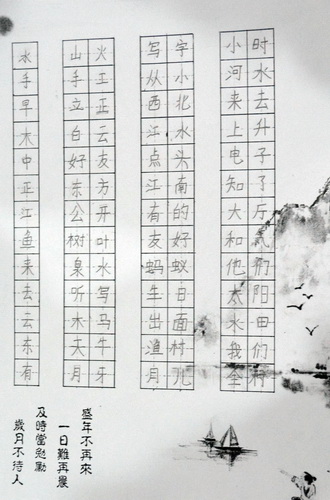 水
手
早
木
中
正
江
鱼
来
去
云
东
有
山火
手工
立正
白云
好友
东方
公开
树叶
泉水
听写
木马
天牛
月牙
写字
从小
西北
江水
点头
江南
有的
友好
蚂蚁
生日
出面
渔村
月儿
小时
河水
来去
上升
电子
知了
大厅
和
他们
太阳
水田
我们
全村
盛年不再來
一日難再晨
及時當勉勵
歲月不待人